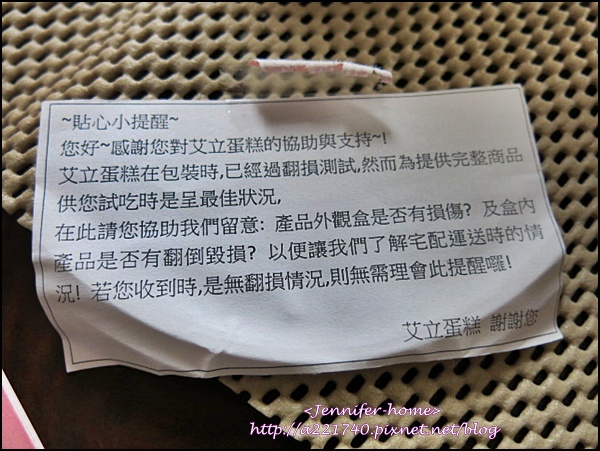 ~貼心小提醒~
您好~感謝您對艾立蛋糕的協助與支持~!
艾立蛋糕在包裝時,已經過翻損測試,然而為提供完整商品
供您試吃時是呈最佳狀況,
在此請您協助我們留意: 產品外觀盒是否有損傷? 及盒內
產品是否有翻倒毀損? 以便讓我們了解宅配運送時的情
況! 若您收到時,是無翻損情況,則無需理會此提醒囉!
艾立蛋糕 謝謝您
<Jennifer-home>
http://a221740.pixnet.net/blog